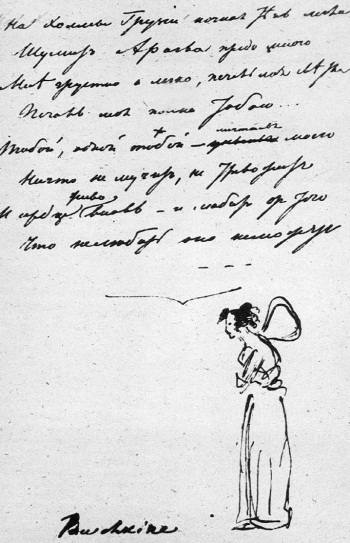 На холмы Грузии ночная легла
Шумит Арагва предо мною
Мне грустно и легко, печаль моя светла
Печаль моя полна тобою...
Тобой, одной тобой – моего
Ничто не мучит, не тревожит
И сердце вновь – и любит от того
Что не любить оно не может
Pouchkine